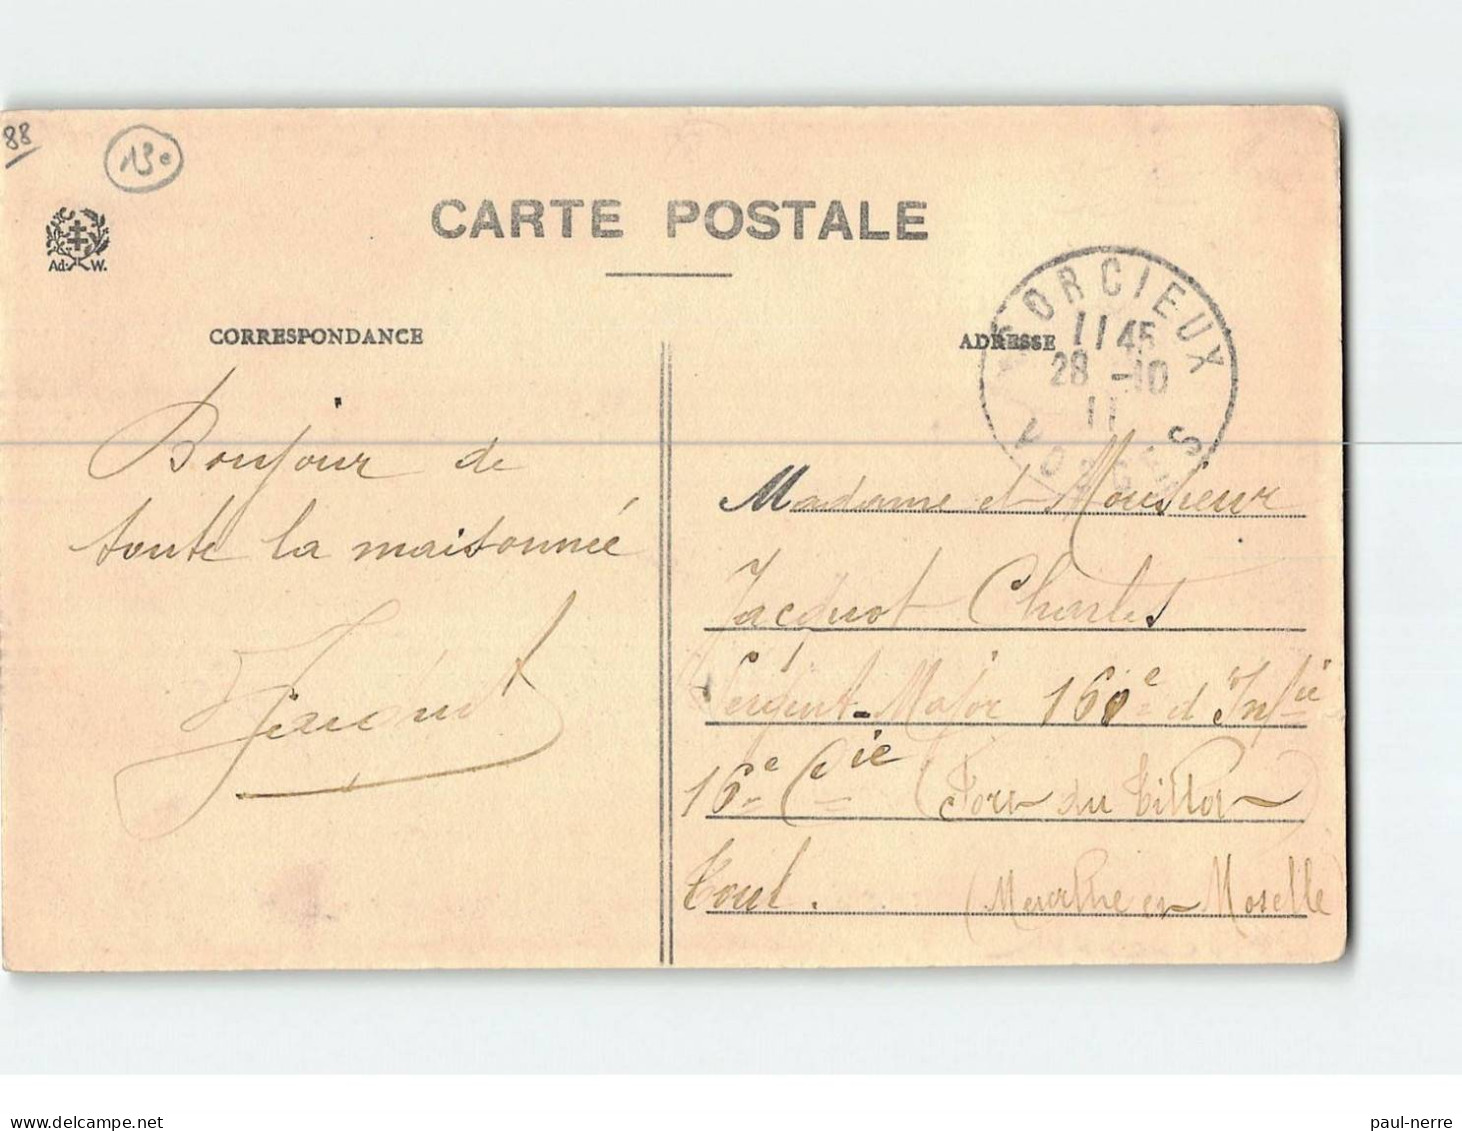 88
130
CARTE POSTALE
Ad. W.
CORRESPONDANCE
ADRESSE
CORCIEUX
11 45
28 -10
11
VOSGES
Bonjour de
toute la maisonnée
Madame et Monsieur
Jacquot Charles
Sergent-Major 160e d'Infie
16e Cie (Fort du Tillot)
Toul. (Meurthe en Moselle)
paul-nerre